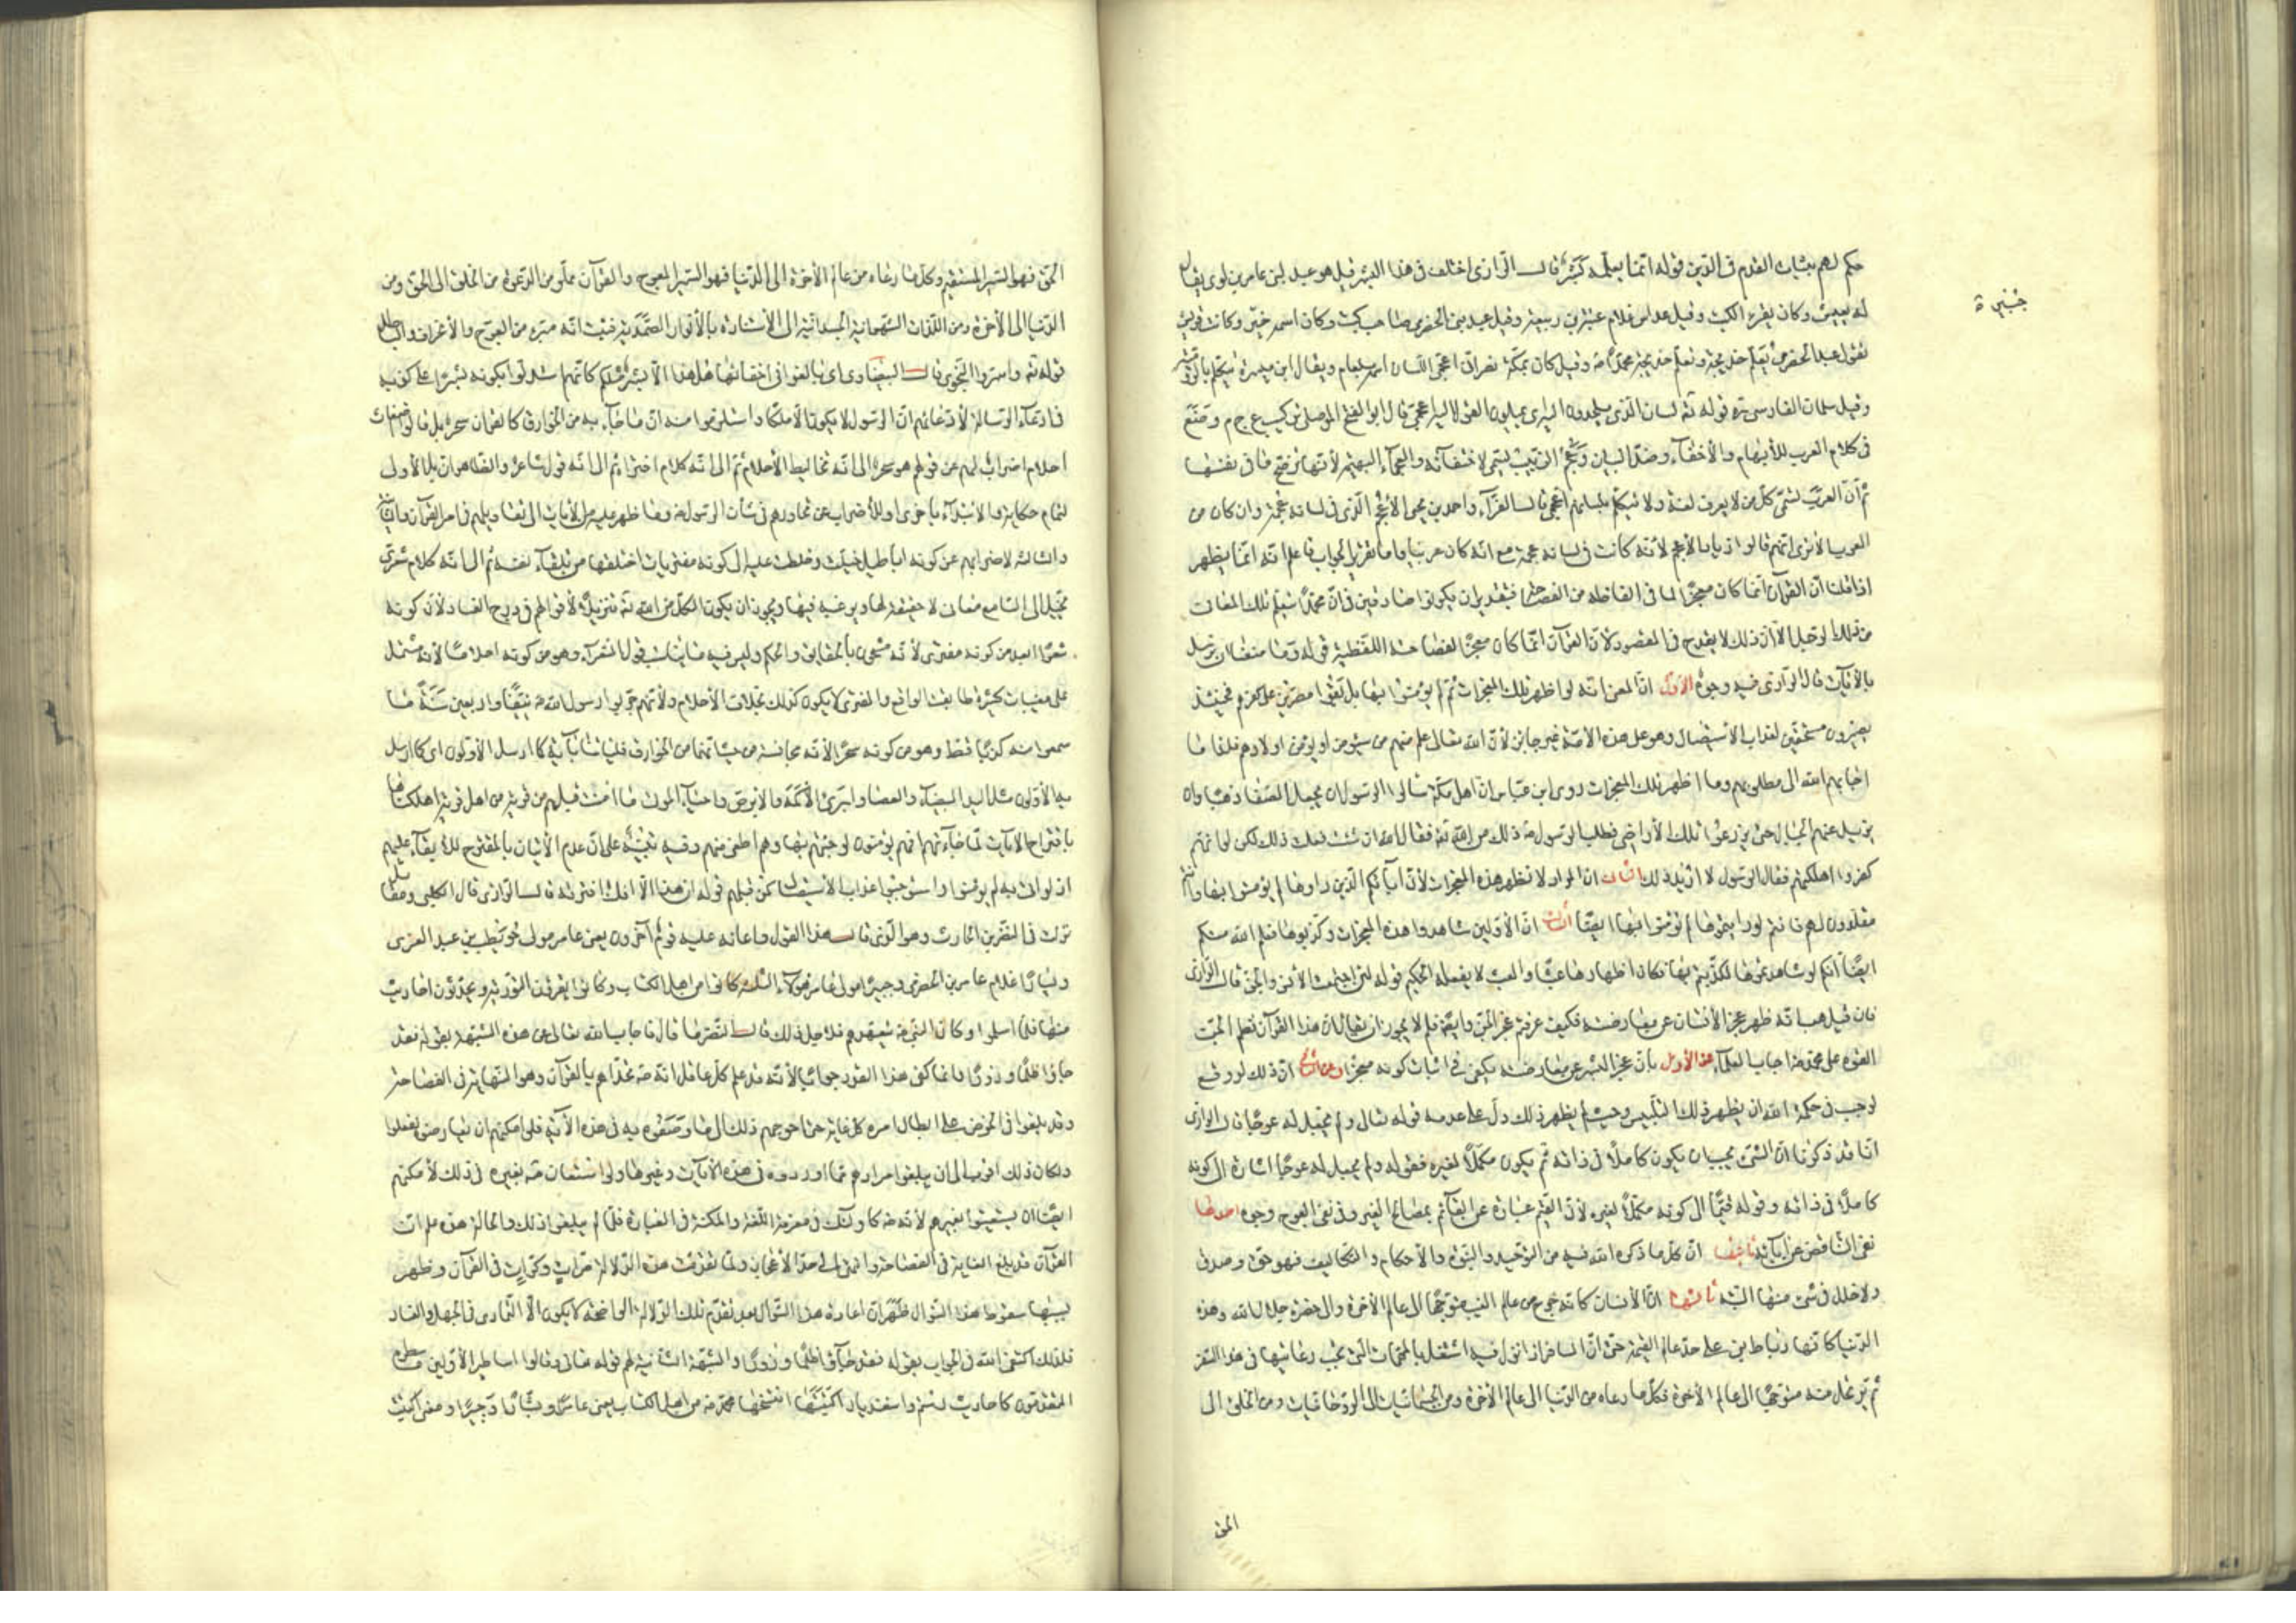 حكم لهم بثبات القدم في الدين قوله انما يعلمه بشر قال الرازى اختلف في هذا البشر قيل هو عبد لبنى عامر بن لوى يقال
له يعيش وكان يقرء الكتب وقيل عداس غلام عتبة بن ربيعة وقيل عبد بنى الحضرمى صاحب كتب وكان اسمه خير وكانت قريش
تقول عبد الحضرمى يعلم خديجة وتعلم خديجة محمدا ص وقيل كان بمكة نصرانى اعجمى اللسان اسمه بلعام ويقال ابن ميسرة يتكلم بالرومية
وقيل سلمان الفارسى ره قوله ته لسان الذى يلحدون اليه اى يميلون القول اليه اعجمى قال ابو الفتح الموصلى تركيب ع ج م وضع
في كلام العرب للأبهام والأخفاء وضد البيان وعجم الزبيب يسمى لاختفائه والعجماء البهيمة لأنها لا توضح ما في نفسها
ثم ان العرب تسمى كل من لا يعرف لغتهم ولا يتكلم بلسانهم اعجمى قال الفراء واحمد بن يحيى الأعجم الذى في لسانه عجمة وان كان من
العرب الا ترى انهم قالوا زياد الأعجم لأنه كانت في لسانه عجمة مع انه كان عربيا واما تقرير الجواب فاعلم انه انما يظهر
اذا قلنا ان القرآن انما كان معجزا لما في الفاظه من الفصاحة فبتقدير ان يكونوا صادقين في ان محمدا يتعلم تلك المعانى
من ذلك الرجل الا ان ذلك لا يقدح في المقصود لأن القرآن انما كان معجزا لفصاحته اللفظية قوله وما منعنا ان نرسل
بالأيات قال الرازى فيه وجوه الأول ان المعنى انه لو اظهر تلك المعجزات ثم لم يؤمنوا بها بل بقوا مصرين على كفرهم فحينئذ
يصيرون مستحقين لعذاب الأستيصال وهو على هذه الأمة غير جايز لأن الله تعالى علم منهم من سيؤمن او يؤمن اولادهم فلهذا ما
اجابهم الله الى مطلوبهم وما اظهر تلك المعجزات روى ابن عباس ان اهل مكة سألوا الرسول ان يجعل الصفا ذهبا وان
يزيل عنهم الجبال حتى يزرعوا تلك الأراضى فطلب الرسول ص ذلك من الله ته فقال الله ان شئت فعلت ذلك لكن لو انهم
كفروا اهلكتهم فقال الرسول لا اريد ذلك الثانى ان المراد لا نظهر هذه المعجزات لأن آبائكم الذين راوها لم يؤمنوا بها وانتم
مقلدون لهم فانتم لو رايتموها لم تؤمنوا بها ايضا الثالث ان الأولين شاهدوا هذه المعجزات وكذبوها فعلم الله منكم
ايضا انكم لو شاهدتموها لكذبتم بها فكان اظهارها عبثا والعبث لا يفعله الحكيم قوله لئن اجتمعت الأنس والجن قال الرازى
فان قيل هب انه ظهر عجز الأنسان عن معارضته فكيف عرفتم عجز الجن وايضا فلم لا يجوز ان يقال ان هذا القرآن نظم الجن
القوه على محمد ص اجاب العلماء عن الأول بان عجز البشر عن معارضته يكفى في اثبات كونه معجزا وعن الثانى ان ذلك لو وقع
لوجب في حكمة الله ان يظهر ذلك التلبيس وحيث لم يظهر ذلك دل على عدمه قوله تعالى ولم يجعل له عوجا قال الرازى
انا قد ذكرنا ان الشئ يجب ان يكون كاملا في ذاته ثم يكون مكملا لغيره فقوله ولم يجعل له عوجا اشارة الى كونه
كاملا في ذاته وقوله قيما الى كونه مكملا لغيره لأن القيم عبارة عن القائم بمصالح الغير وفى نفى العوج وجوه احدها
نفى التناقض عن آياته ثانيها ان كل ما ذكره الله فيه من التوحيد والنبوة والأحكام والتكاليف فهو حق وصدق
ولا خلل في شئ منها البتة ثالثها ان الأنسان كانه خرج من عالم الغيب متوجها الى عالم الأخرة والى حضرة جلال الله وهذه
الدنيا كانها رباط بنى على حد عالم القيمة حتى ان المسافر اذا نزل فيه اشتغل بالمهمات التى يجب رعايتها في هذا السفر
ثم يرتحل منه متوجها الى عالم الأخرة فكل ما دعاه من الدنيا الى عالم الأخرة ومن الجسمانيات الى الروحانيات ومن الخلق الى
الحق
الحق فهو السير المستقيم وكل ما دعاه من عالم الأخرة الى الدنيا فهو السير المعوج والقرآن مملو من الدعوة من الخلق الى الحق ومن
الدنيا الى الأخرة ومن اللذات الشهوانية الجسدانية الى الأستنارة بالأنوار الصمدية فثبت انه مبرء من العوج والأعراف والباطل
قوله ته واسروا النجوى قال البيضاوى اى بالغوا في اخفائها هل هذا الا بشر مثلكم كانهم استدلوا بكونه بشرا على كذبه
في ادعاء الرسالة لأدعائهم ان الرسول لا يكون الا ملكا واستلزموا منه ان ما جاء به من الخوارق كالقران سحر بل قالوا اضغاث
احلام اضراب لهم عن قولهم هو سحر الى انه تخاليط الأحلام ثم الى انه كلام افتراء ثم الى انه قول شاعر والظاهر ان بل الأولى
لتمام حكاية والأبتداء باخرى او للأضراب عن تحاورهم في شأن الرسول ص وما ظهر عليه من الأيات الى تقاولهم في امر القرآن والثانية
والثالثة لاضرابهم عن كونه اباطيل خيلت وخلطت عليه الى كونه مفتريات اختلقها من تلقاء نفسه ثم الى انه كلام شعرى
يخيل الى السامع معان لا حقيقة لها ويرغبه فيها ويجوز ان يكون الكل من الله ته تنزيلا لأقوالهم في درج الفساد لأن كونه
شعرا ابعد من كونه مفترى لأنه مشحون بالحقايق والحكم وليس فيه ما يناسب قول الشعراء وهو من كونه احلاما لأنه مشتمل
على مغيبات كثيرة طابقت الواقع والمفترى لا يكون كذلك بخلاف الأحلام ولأنهم جربوا رسول الله ص نيفا واربعين سنة ما
سمعوا منه كذبا قط وهو من كونه سحرا لأنه مجانسه من حيث انهما من الخوارق فليأتنا بآية كما ارسل الأولون اى كما ارسل
به الأولون مثل اليد البيضاء والعصا وابرئ الأكمه والابرص واحياء الموت ما امنت قبلهم من قرية من اهل قرية اهلكناها
باقتراح الايات لما جاءتهم افهم يؤمنون لو جئتهم بها وهم اطغى منهم وفيه تنبيه على ان عدم الأتيان بالمقترح للابقاء عليهم
اذ لو اتى به لم يؤمنوا واستوجبوا عذاب الأستيصال كمن قبلهم قوله ان هذا الا افك افتريه قال الرازى قال الكلبى ومقاتل
نزلت في النضر بن الحارث وهو الذى قال هذا القول واعانه عليه قوم آخرون يعنى عامر مولى حويطب بن عبد العزى
ويسارا غلام عامر بن الحضرمى وجبيرا مولى عامر هؤلاء الثلثة كانوا من اهل الكتاب وكانوا يقرؤن التورية ويحدثون احاديث
منها فلما اسلموا وكان النبى ص يتعهدهم فلاجل ذلك قال النضر ما قال فاجاب الله تعالى عن هذه الشبهة بقوله فقد
جاؤا ظلما وزورا وانما كفى هذا القدر جوابا لأنه قد علم كل عاقل انه ص تحداهم بالقرآن وهو النهاية في الفصاحة
وقد بلغوا في الحرص على ابطال امره كل غاية حتى اخرجهم ذلك الى ما وصفوه به في هذه الأية فلو امكنهم ان يعارضوه لفعلوا
ولكان ذلك اقرب الى ان يبلغوا مرادهم مما اوردوه في هذه الأيات وغيرها ولو استعان ص بغيره في ذلك لأمكنهم
ايضا ان يستعينوا بغيرهم لأنه ص كاولئك في معرفة اللغة والمكنة في العبارة فلما لم يبلغوا ذلك والحالة هذه علم ان
القرآن قد بلغ النهاية في الفصاحة وانتهى الى حد الأعجاز ولما تقدمت هذه الدلالة مرات وكرات في القرآن وظهر
بسببها سقوط هذا السؤال ظهر ان اعادة هذا السؤال بعد تقدم تلك الدلالة الواضحة لا يكون الا التمادى في الجهل والعناد
فلذلك اكتفى الله في الجواب بقوله فقد جاؤا ظلما وزورا والشبهة الثانية لهم قوله تعالى وقالوا اساطير الأولين ما سطره
المتقدمون كاحاديث رستم واسفنديار اكتتبها انتسخها محمد ص من اهل الكتاب يعنى عامرا ويسارا وجبيرا ومعنى اكتتب